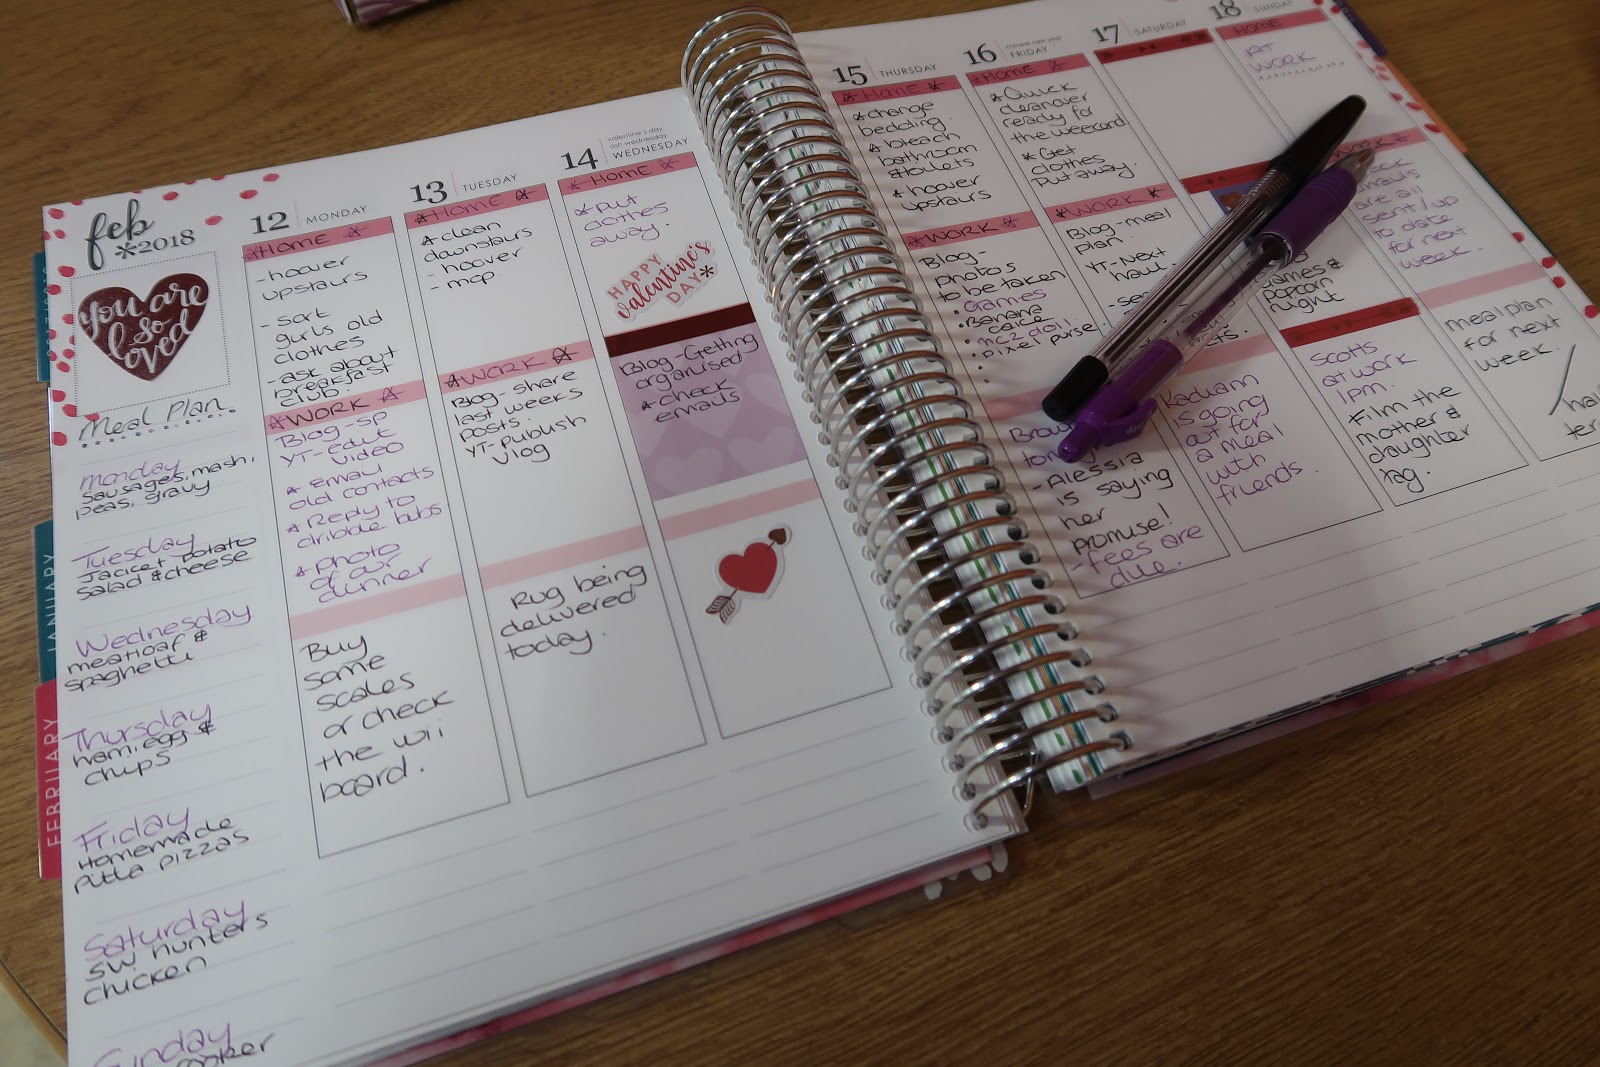 feb
*2018
You are
so
loved
Meal Plan
Monday
Sausages, mash,
peas, gravy
Tuesday
Jacket potato
Salad & cheese
Wednesday
meatloaf &
spaghetti
Thursday
ham, egg &
chips
Friday
Homemade
pitta pizzas
Saturday
SW hunters
chicken
Sunday
JANUARY
FEBRUARY
12 MONDAY
HOME
- hoover
upstairs
- sort
girls old
clothes
- ask about
breakfast
club.
WORK
Blog - SP
YT - edit
video
* email
old contacts
* Reply to
dribble bibs
* photo
of our
dinner
Buy
some
scales
or check
the wii
board.
13 TUESDAY
HOME
* clean
downstairs
- hoover
- mop
WORK
Blog - share
last weeks
posts.
YT - publish
vlog
Rug being
delivered
today.
valentine's day
ash wednesday
14 WEDNESDAY
HOME
* Put
clothes
away.
HAPPY
valentine's
DAY*
Blog - Getting
organised
* check
emails
15 THURSDAY
HOME
* change
bedding.
* bleach
bathroom
& toilets
* hoover
upstairs
WORK
Blog -
photos
to be taken
• Games
• Banana
cake
• mc2 doll.
• pixel purse.
- Alessia
is saying
her
promise!
- fees are
due.
chinese new year
16 FRIDAY
HOME
* Quick
cleanover
ready for
the weekend
* Get
clothes
Put away.
WORK
Blog - meal
plan.
YT - Next
haul.
is going
out for
a meal
with
friends.
17 SATURDAY
games &
popcorn
night
Scotts
at work
1pm.
* Film the
mother &
daughter
tag.
18 SUNDAY
HOME
AT
WORK
are all
sent / up
to date
for next
week.
meal plan
for next
week.